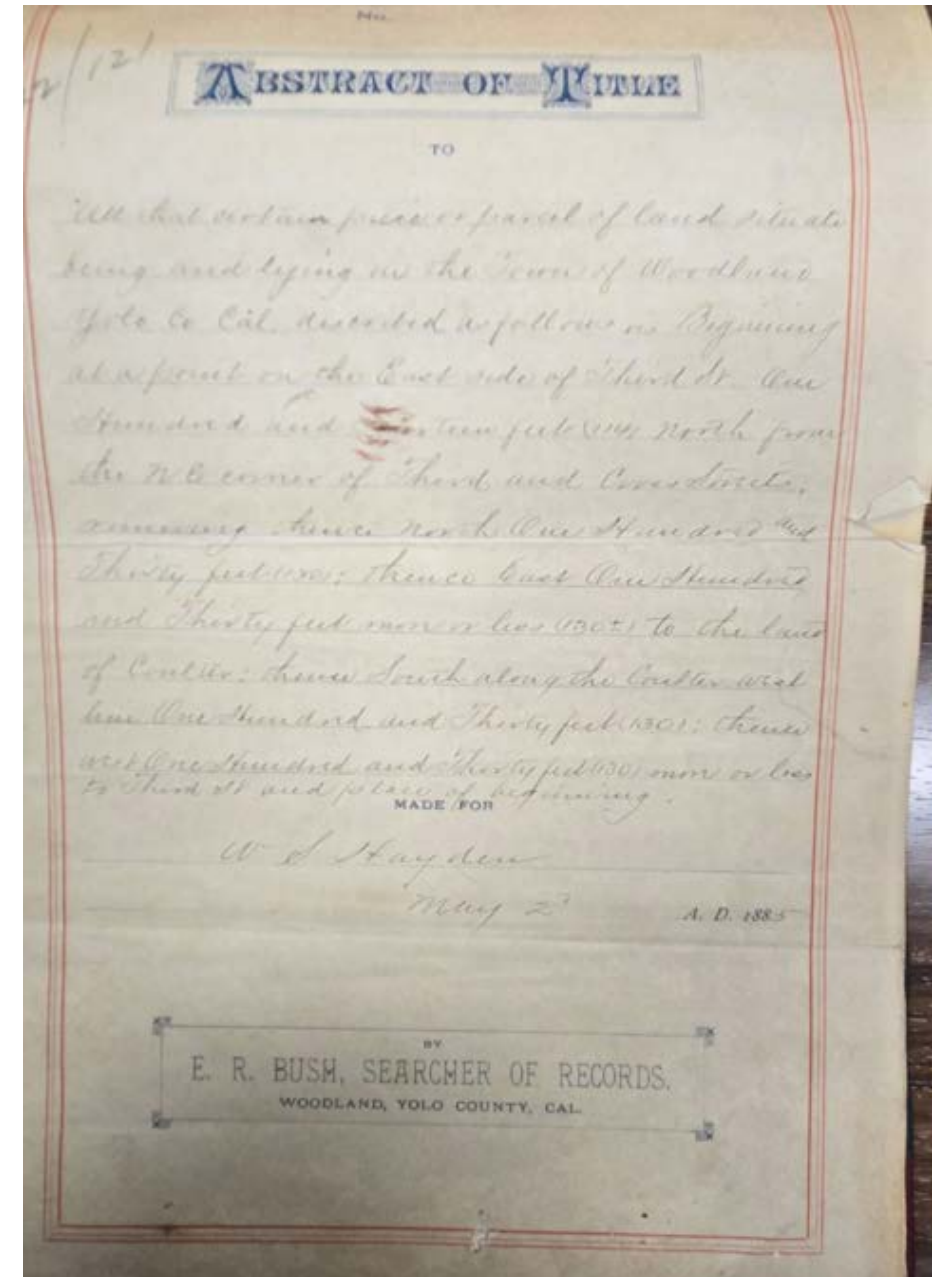 No.
2/121
ABSTRACT OF TITLE
TO
All that certain piece or parcel of land situate
being and lying in the Town of Woodland
Yolo Co Cal. described as follows Beginning
at a point on the East side of Third St. One
Hundred and feet (114) North from
the N E corner of Third and Cross Streets;
running thence North One Hundred and
Thirty feet (130); thence East One Hundred
and Thirty feet more or less (130±) to the land
of Coulter: thence South along the Coulter west
line One Hundred and Thirty feet (130): thence
west One Hundred and Thirty feet (130) more or less
to Third St and place of beginning.
MADE FOR
W S Hayden
May 2d A. D. 1885
BY
E. R. BUSH, SEARCHER OF RECORDS.
WOODLAND, YOLO COUNTY, CAL.